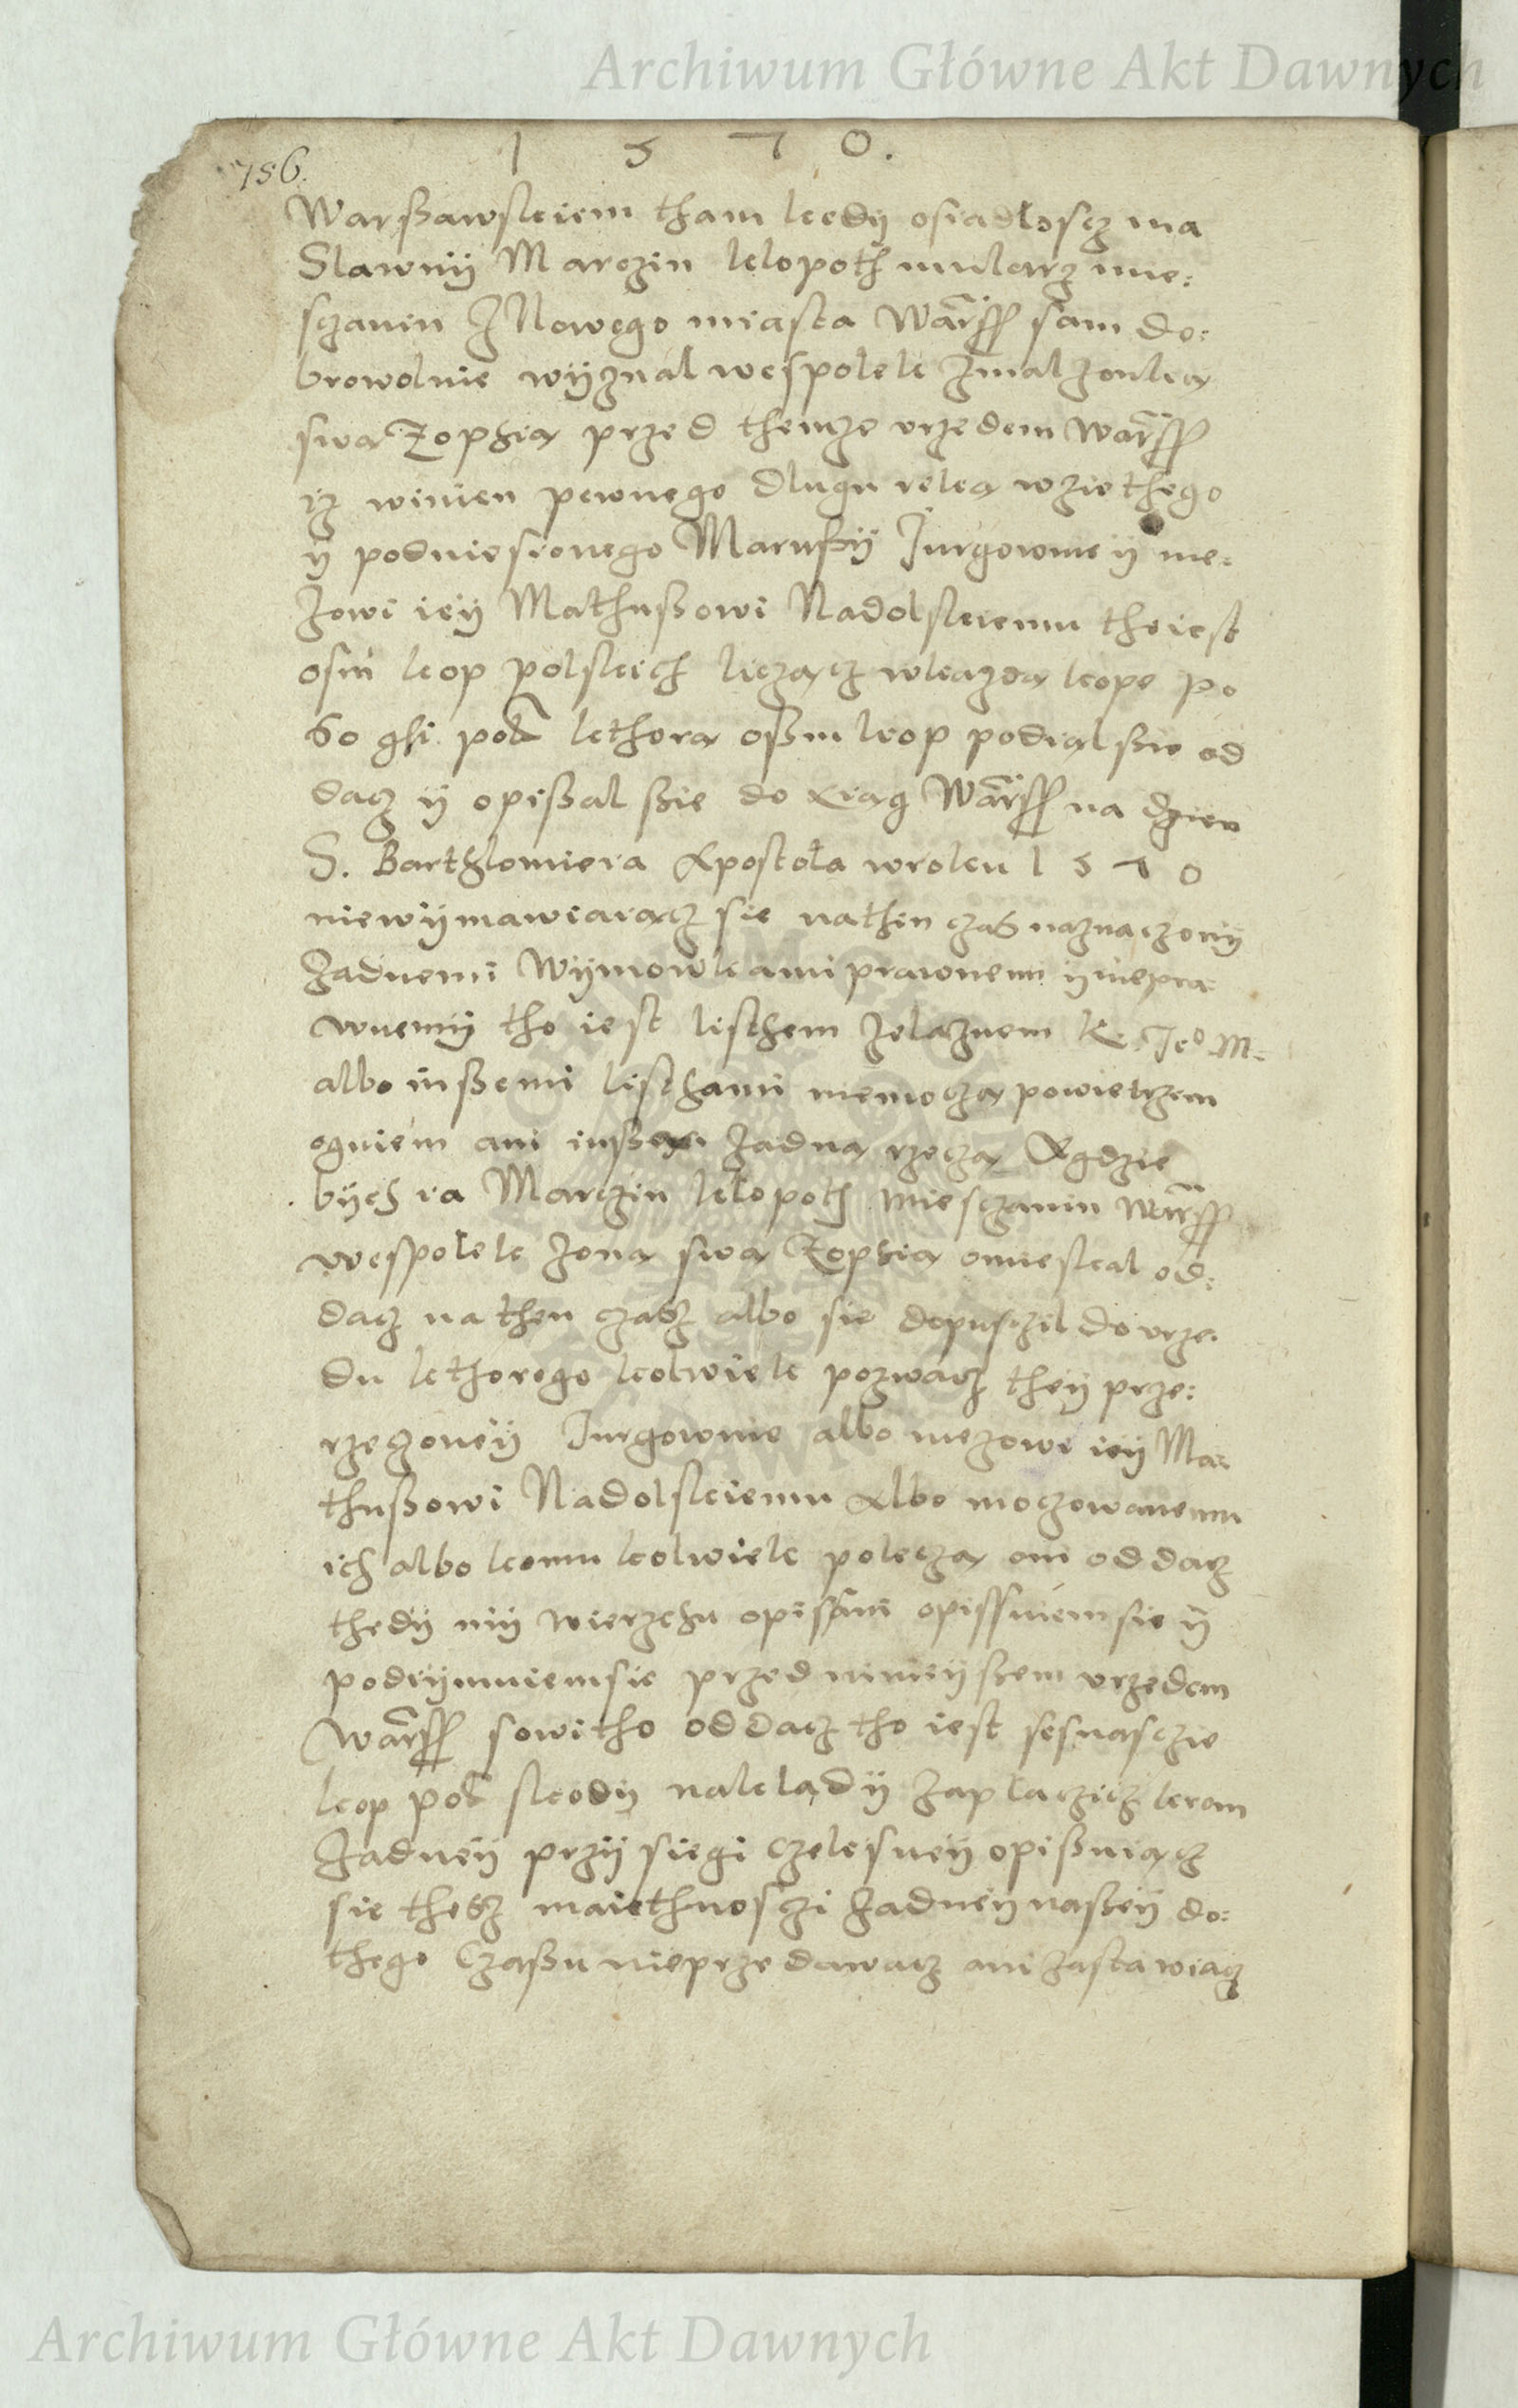 Archiwum Główne Akt Dawnych
1 5 7 0.
786.
Warßawskiem tham kiedy osiadłoscz ma
Slawny Marczin klopoth mularz mie:
sczanin z Nowego miasta Warss sam do:
browolnie wyznal wespolek zmalzonką
swą Zophią przed themze vrzedem Warss
iz winien pewnego dlugu ręką wziethego
y podniesionego Marußy Jurgownie y me:
zowi iey Mathußowi Nadolskiemu tho iest
osm kop polskich liczącz wkazdą kope po
60 gſi pol kthorą oßm kop podiąl ßie od
dacz y opißal ßie do xiąg Warss na dzien
S. Barthlomieia Apostoła wroku 1 5 7 0
niewymawiaiącz sie nathen czas naznaczony
zadnemi wymowkami prawnemi y niepra:
wnemy tho iest listhem zelaznem K. Jeo M:
albo inßemi listhami niemoczą powietrzem
ogniem ani inßą zadną rzeczą Agdzie
bych ia Marczin klopoth miesczanin Warss
wespolek zoną swą Zophią omieskal od:
dacz na then czasz albo sie dopusczil do vrze:
du kthorego kolwiek pozwacz they prze:
rzeczoney Jurgownie albo mezowi iey Ma:
thußowi Nadolskiemu Albo moczowanemu
ich albo komu kolwiek poleczą oni oddacz
thedy my wierzchu opisani opissuiem sie y
podeymuiem sie przed ninieyßem vrzedem
Warss sowitho oddacz tho iest sesnasczie
kop pol skody naklady zaplaczicz krom
zadney przysiegi czelesney opißuiącz
sie thesz maiethnosczi zadney naßey do:
thego Czaßu nieprzedawacz ani zastawiacz
Archiwum Główne Akt Dawnych